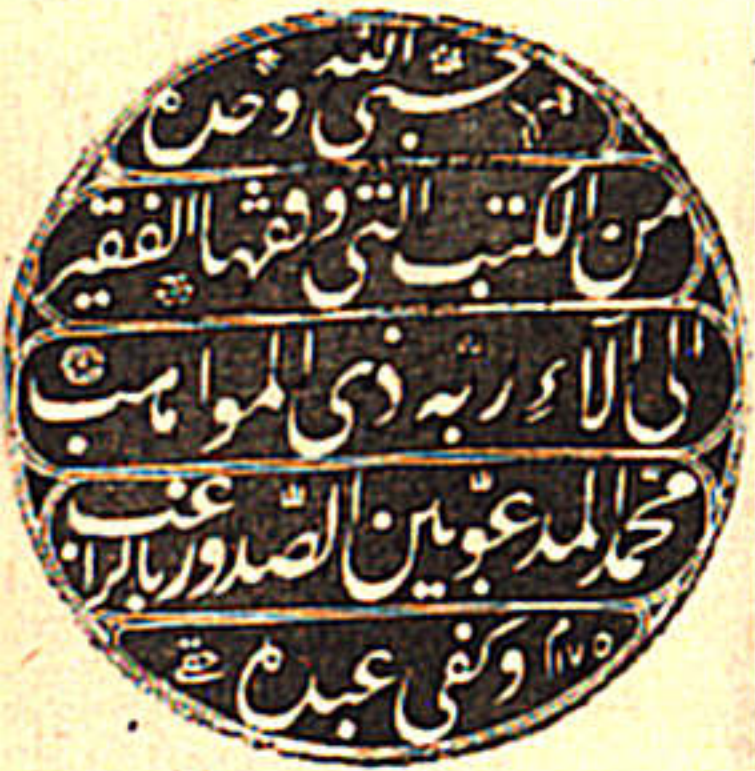 حسبى الله وحده
من الكتب التى وقفها الفقير
الى الآء ربه ذى المواهب
محمد المدعو بين الصدور بالراغب
وكفى عبده